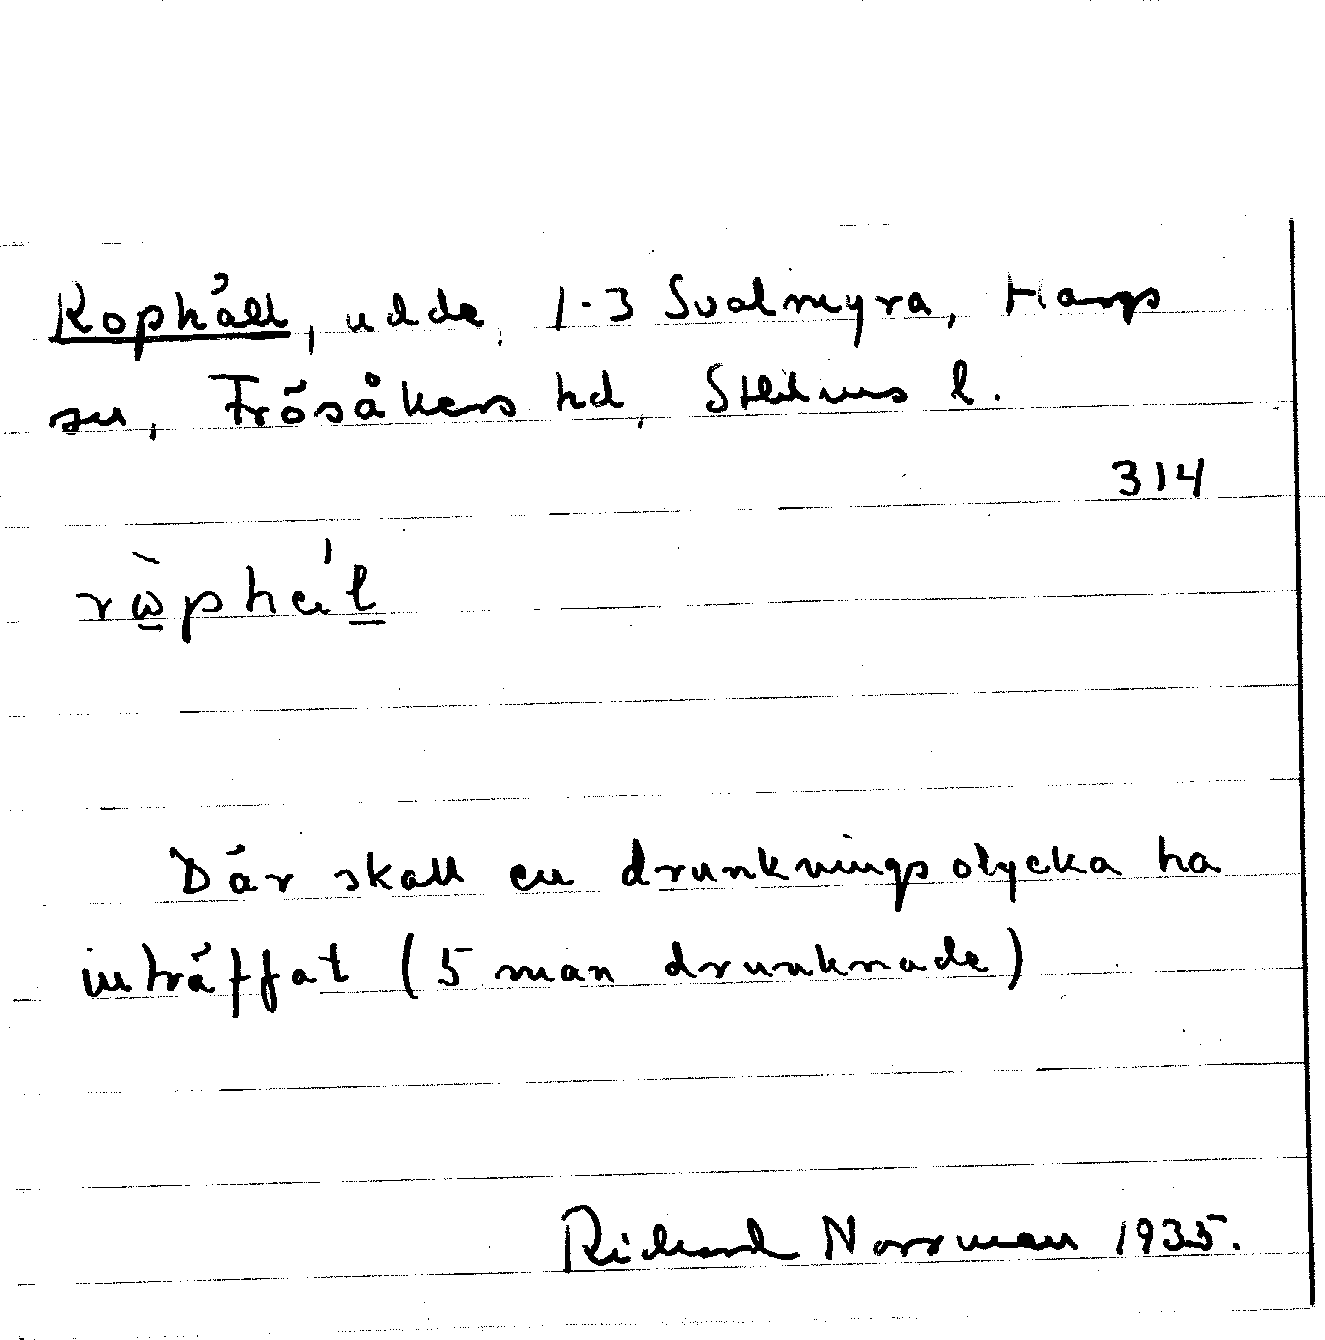 Rophäll, udde, 1-3 Svalmyra, Hargs
sn, Frösåkers hd, Sthlms l.
314
Där skall en drunkningsolycka ha
inträffat (5 man drunknade)
Richard Norrman 1935.